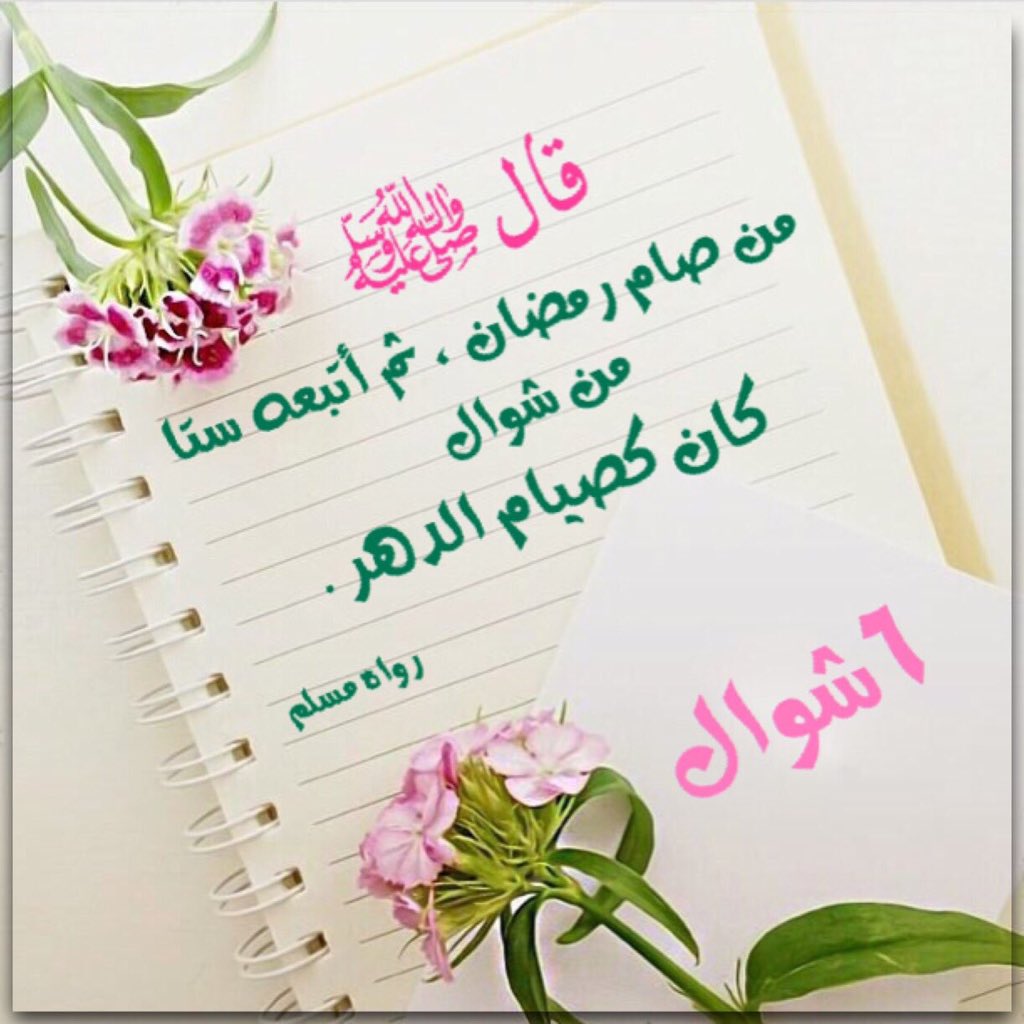 قال ﷺ
من صام رمضان ، ثم أتبعه ستا
من شوال
كان كصيام الدهر .
رواه مسلم
٦ شوال